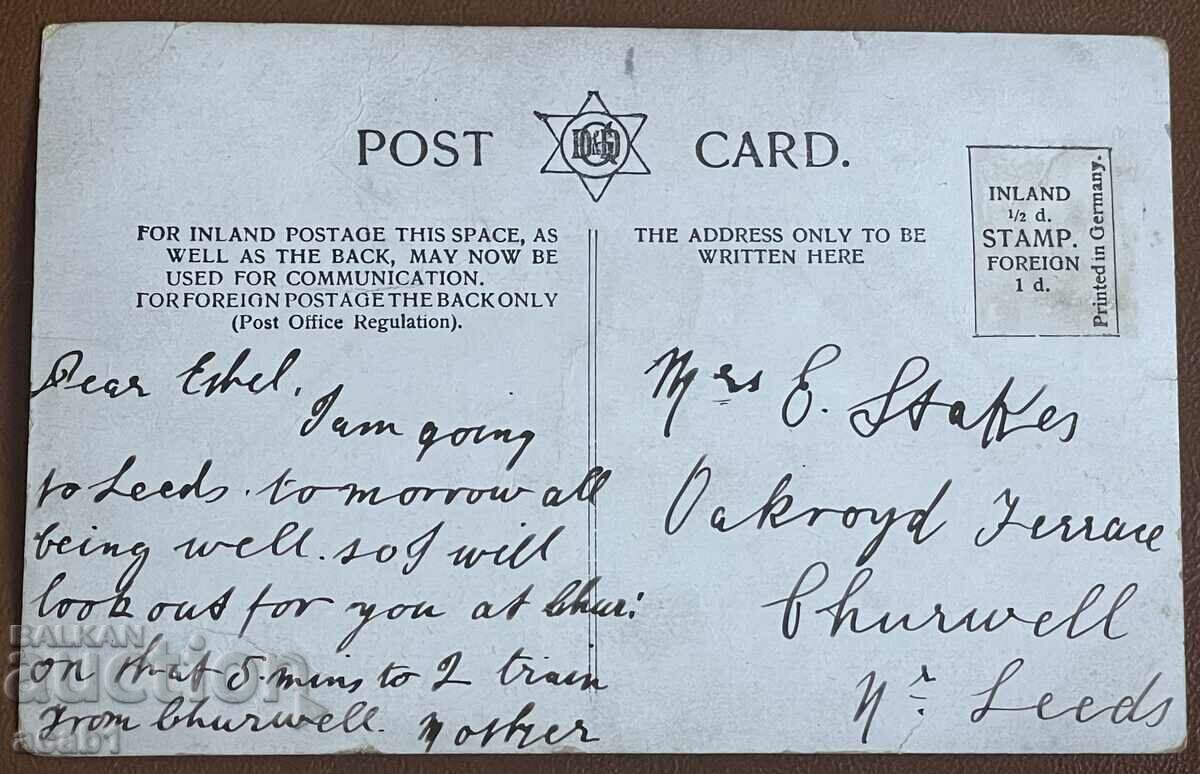 POST CARD.
FOR INLAND POSTAGE THIS SPACE, AS
WELL AS THE BACK, MAY NOW BE
USED FOR COMMUNICATION.
FOR FOREIGN POSTAGE THE BACK ONLY
(Post Office Regulation).
THE ADDRESS ONLY TO BE
WRITTEN HERE
INLAND
1/2 d.
STAMP.
FOREIGN
1 d.
Printed in Germany.
Dear Ethel,
I am going
to Leeds. tomorrow all
being well. so I will
look out for you at Chur:
on that 5. mins to 2 train
from Churwell. Mother
Mrs E. Stakes
Oakroyd Terrace
Churwell
Nr. Leeds
BALKAN
auction
acab1